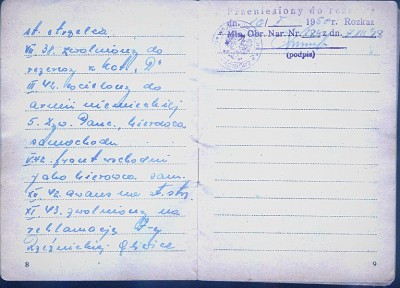 st. strzelca
VII 31. zwolniony do
rezerwy z kat. "D"
III 42. wcielony do
armii niemieckiej
5. Panc., kierowca
samochodu
V. 42. front wschodni
jako kierowca sam.
42. awans na st. strz.
XI 43. zwolniony na
reklamację
Gliwice
8
Przeniesiony do rezerwy
dn. 10/ I 1950 r. Rozkaz
Min. Obr. Nar. Nr. z dn.
(podpis)
9